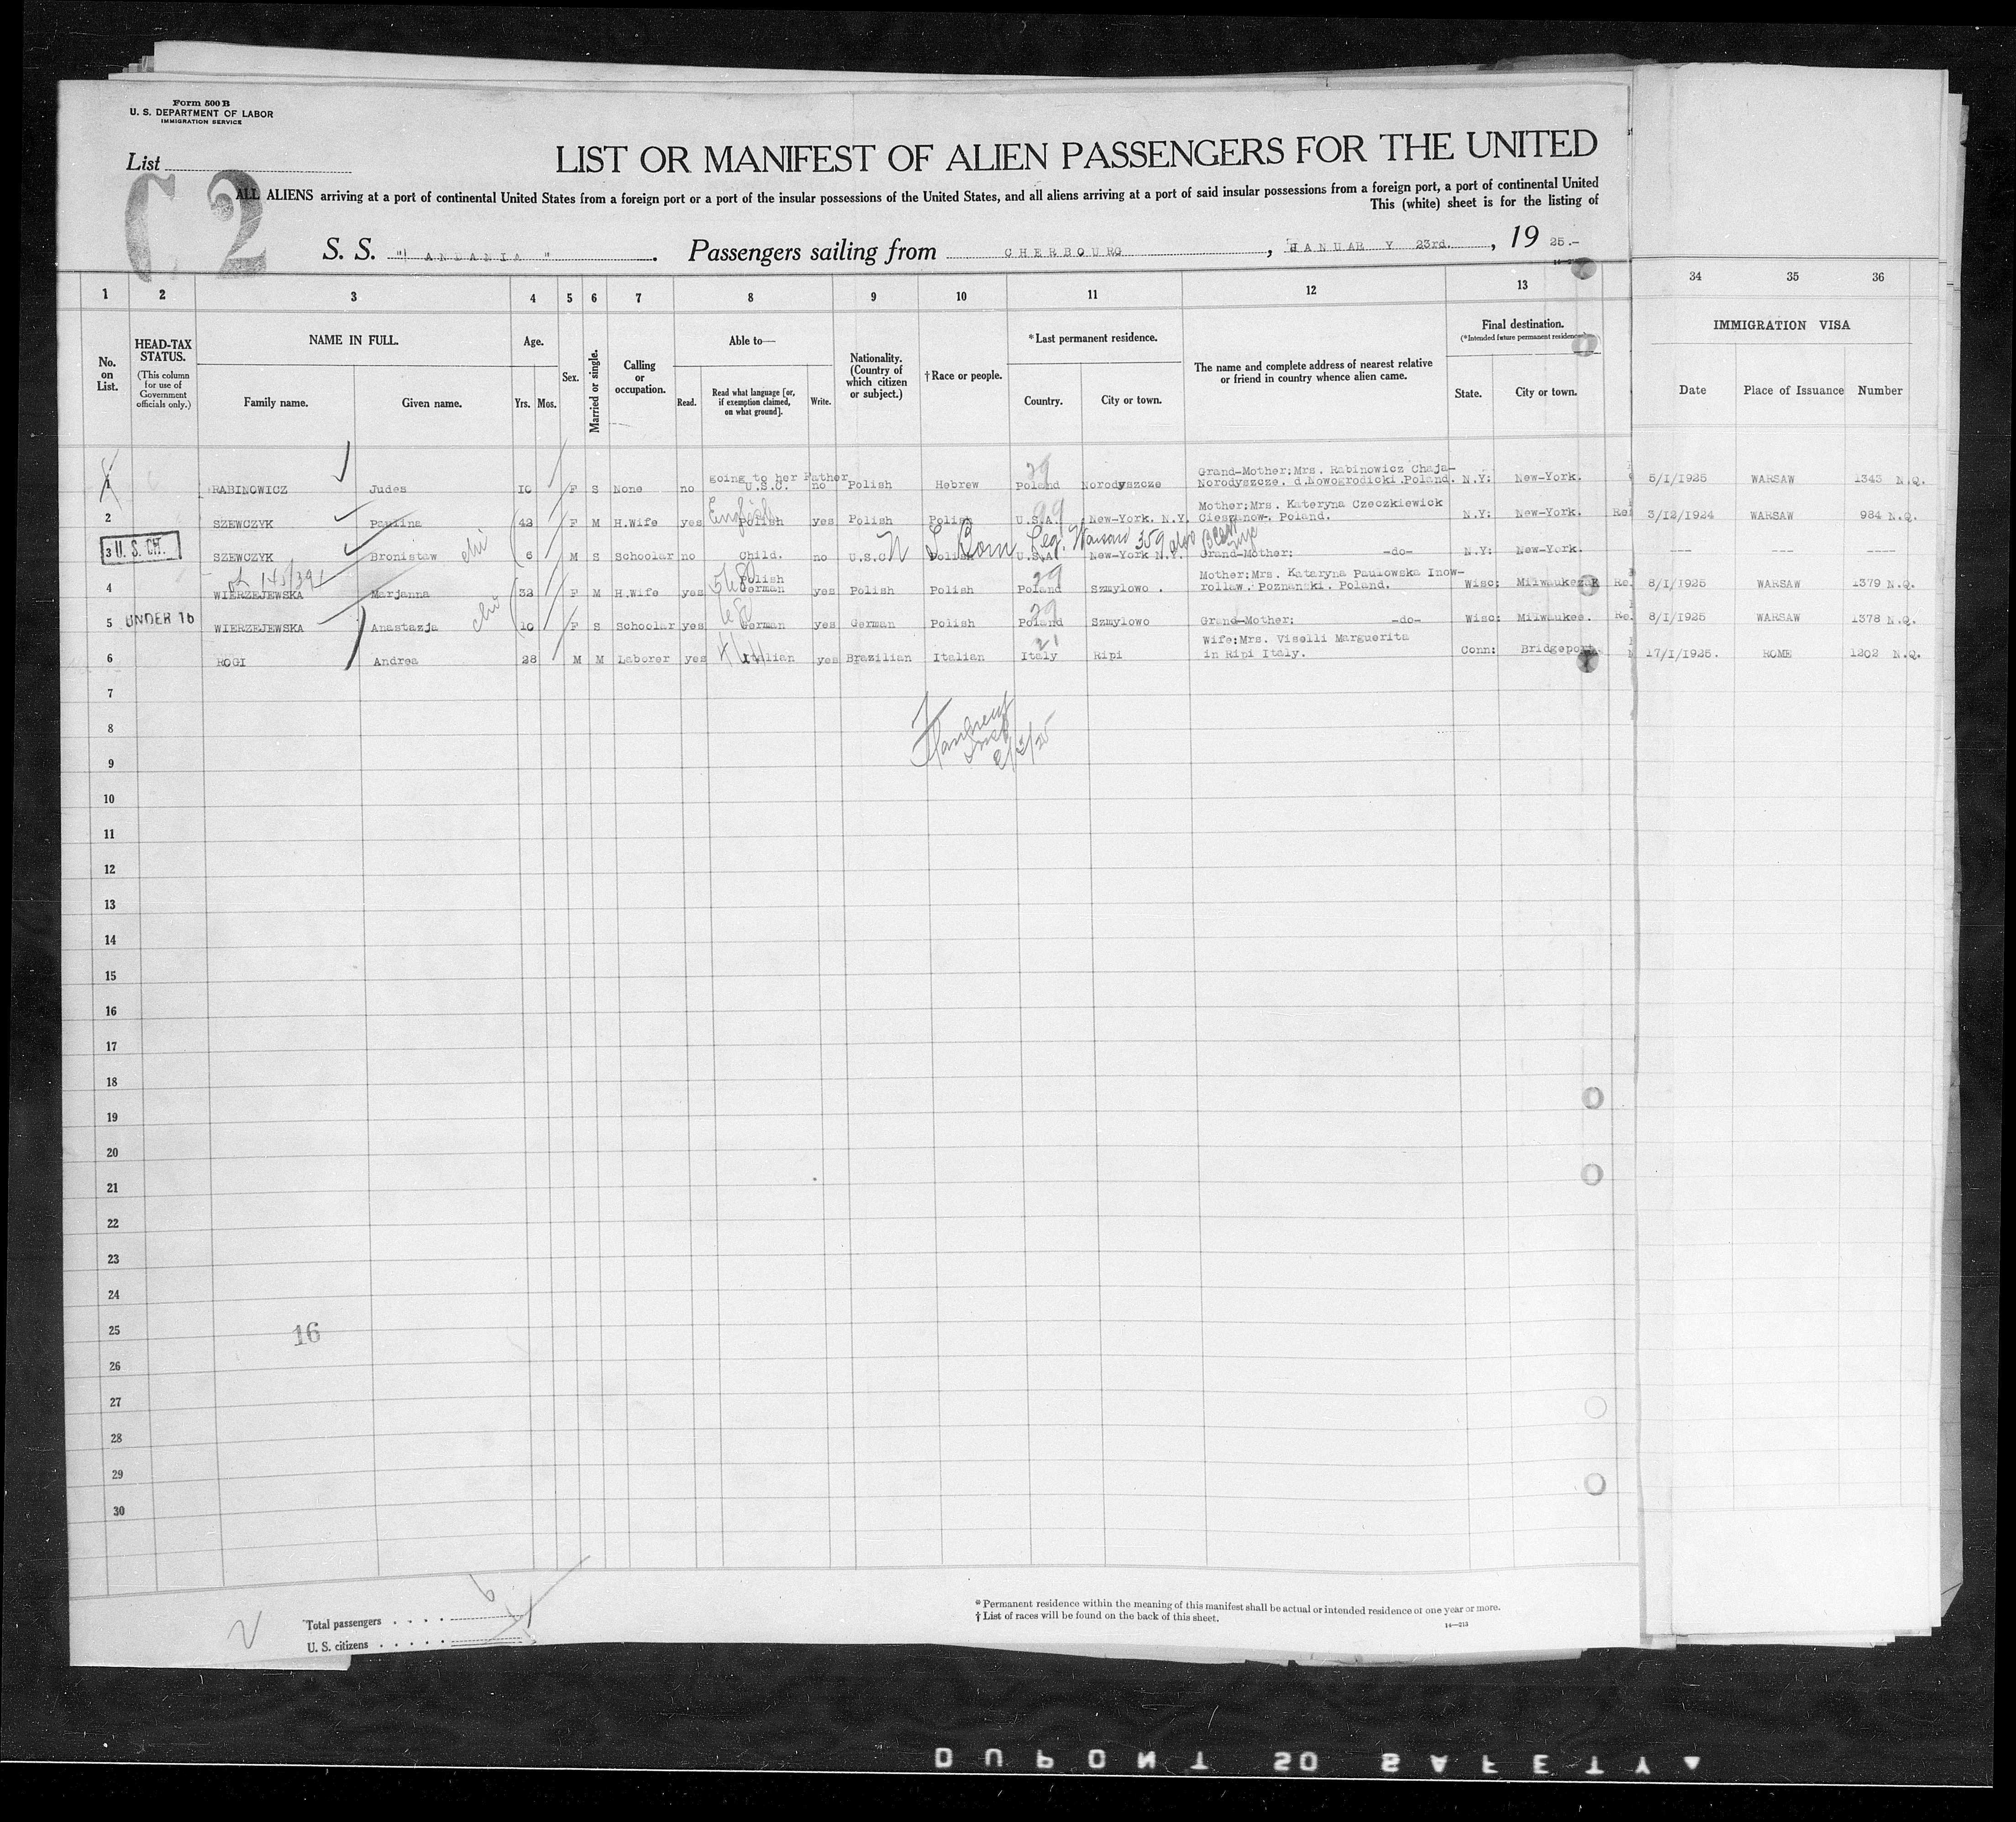 Form 500 B
U. S. DEPARTMENT OF LABOR
IMMIGRATION SERVICE
List
C 2
LIST OR MANIFEST OF ALIEN PASSENGERS FOR THE UNITED
ALL ALIENS arriving at a port of continental United States from a foreign port or a port of the insular possessions of the United States, and all aliens arriving at a port of said insular possessions from a foreign port, a port of continental United
This (white) sheet is for the listing of
S. S. " ANDANIA " . Passengers sailing from CHERBOURG , JANUARY 23rd. , 19 25.-
1 2 3 4 5 6 7 8 9 10 11 12 13 34 35 36
No. on List.
HEAD-TAX STATUS. (This column for use of Government officials only.)
NAME IN FULL.
Family name. Given name.
Age.
Yrs. Mos.
Sex.
Married or single.
Calling or occupation.
Able to—
Read. Read what language [or, if exemption claimed, on what ground]. Write.
Nationality. (Country of which citizen or subject.)
†Race or people.
*Last permanent residence.
Country. City or town.
The name and complete address of nearest relative or friend in country whence alien came.
Final destination.
(*Intended future permanent residence)
State. City or town.
IMMIGRATION VISA
Date Place of Issuance Number
29
going to her Father Grand-Mother:Mrs. Rabinowicz Chaja-
1 RABINOWICZ Judes 10 F S None no U.S.C. no Polish Hebrew Poland Norodyszcze Norodyszcze. d.Nowogrodicki.Poland. N.Y: New-York. 5/I/1925 WARSAW 1343 N.Q.
English Mother:Mrs. Kateryna Czeczkiewick
2 SZEWCZYK Paulina 42 F M H.Wife yes Polish yes Polish Polish U.S.A. New-York. N.Y. Cieszanow. Poland. N.Y: New-York. Re 3/12/1924 WARSAW 984 N.Q.
Warsaw 359
3 U. S. CH. SZEWCZYK Bronistaw 6 M S Schoolar no Child. no U.S.C. Polish U.S.A. New-York N.Y. Grand-Mother: -do- N.Y: New-York. --- --- ----
Polish 29 Mother:Mrs. Kataryna Paulowska Inow-
4 WIERZEJEWSKA Marjanna 32 F M H.Wife yes German yes Polish Polish Poland Szmylowo . rollaw. Poznanski. Poland. Wisc: Milwaukee. Re. 8/I/1925 WARSAW 1379 N.Q.
29
5 UNDER 16 WIERZEJEWSKA Anastazja 10 F S Schoolar yes German yes German Polish Poland Szmylowo Grand-Mother: -do- Wisc: Milwaukee. Re. 8/I/1925 WARSAW 1378 N.Q.
21 Wife:Mrs. Viselli Marguerita
6 ROGI Andrea 28 M M Laborer yes Italian yes Brazilian Italian Italy Ripi in Ripi Italy. Conn: Bridgeport 17/I/1925. ROME 1202 N.Q.
7
8
9
10
11
12
13
14
15
16
17
18
19
20
21
22
23
24
25 16
26
27
28
29
30
Total passengers . . . . 6
U. S. citizens . . . . .
* Permanent residence within the meaning of this manifest shall be actual or intended residence of one year or more.
† List of races will be found on the back of this sheet.
14—213
DUPONT SO SAFETY